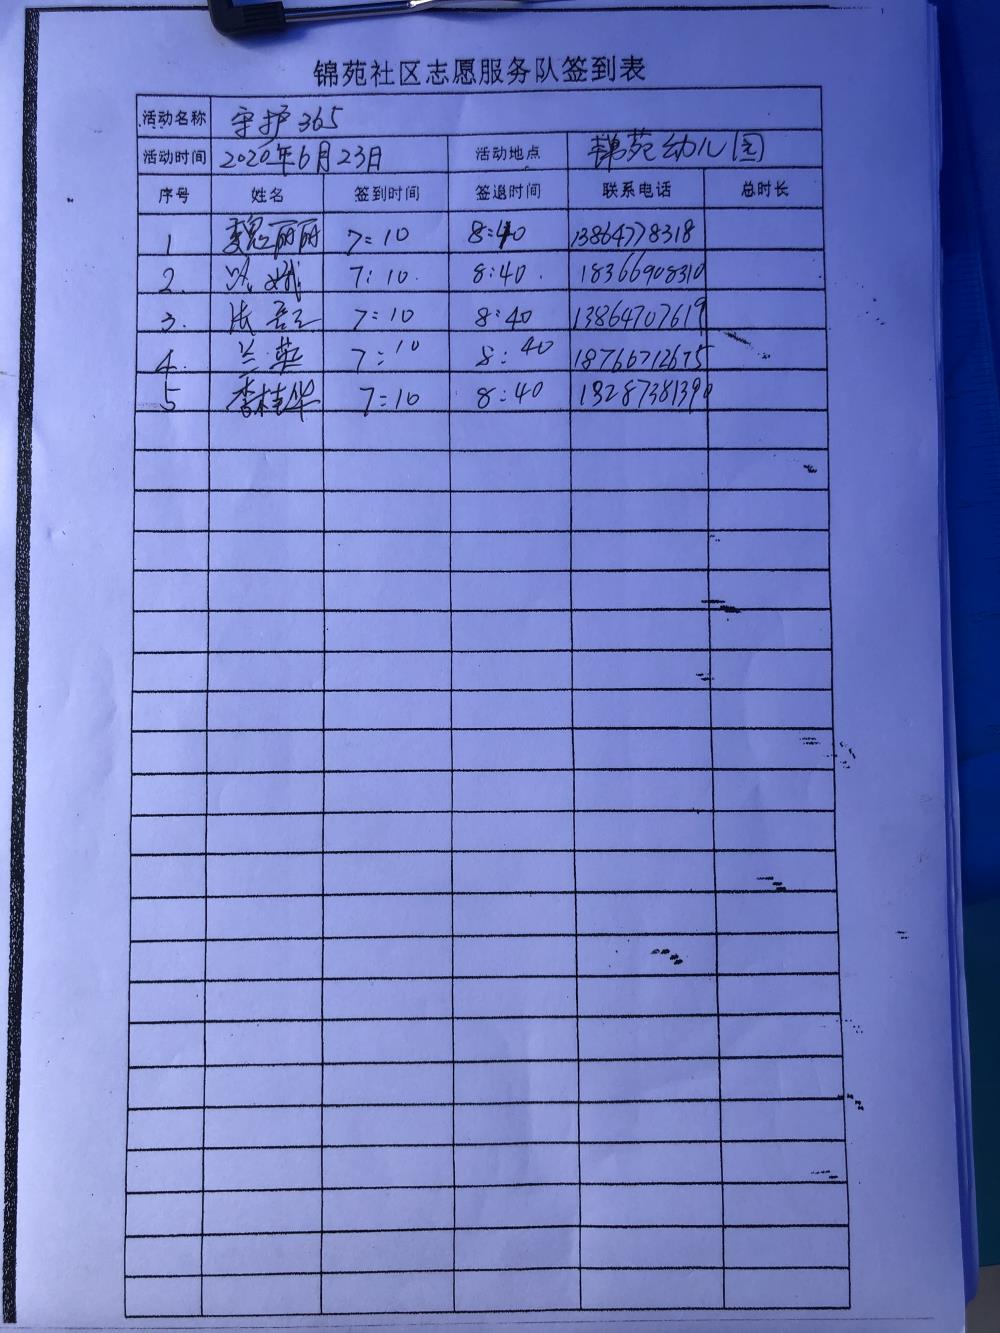 锦苑社区志愿服务队签到表
活动名称 守护365
活动时间 2020年6月23日 活动地点 锦苑幼儿园
序号 姓名 签到时间 签退时间 联系电话 总时长
1 魏丽丽 7:10 8:40 13864778318
2. 7:10. 8:40. 18366908310
3. 7:10 8:40 13864707619
4. 兰英 7:10 8:40 18766712675
5 李桂华 7:10 8:40 13287381390